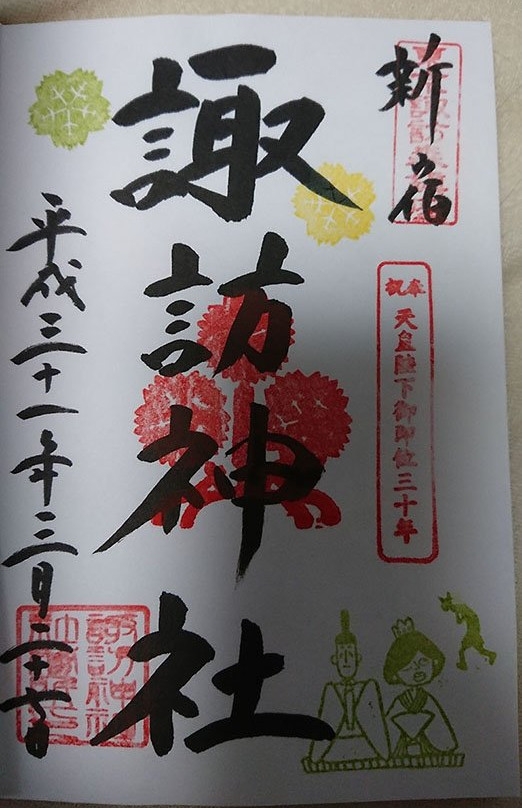 新宿
奉祝 天皇陛下御即位三十年
諏訪神社
平成三十一年三月二十七日
諏訪神社